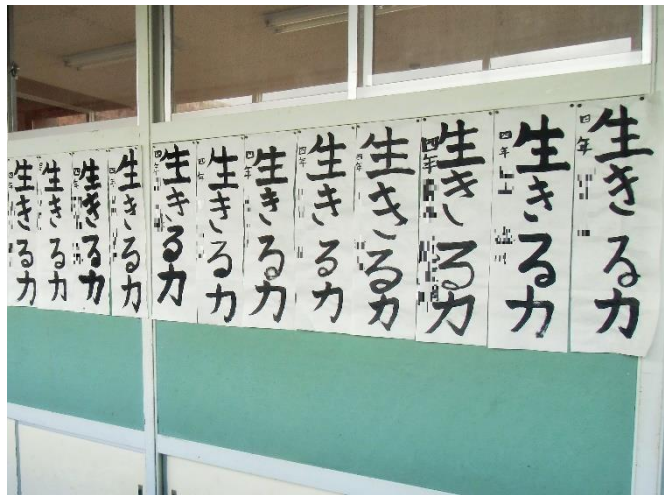 生きる力
四年
生きる力
四年
生きる力
四年
生きる力
四年
生きる力
四年
生きる力
四年
生きる力
四年
生きる力
四年
生きる力
四年
生きる力
四年
生きる力
四年
生きる力
四年